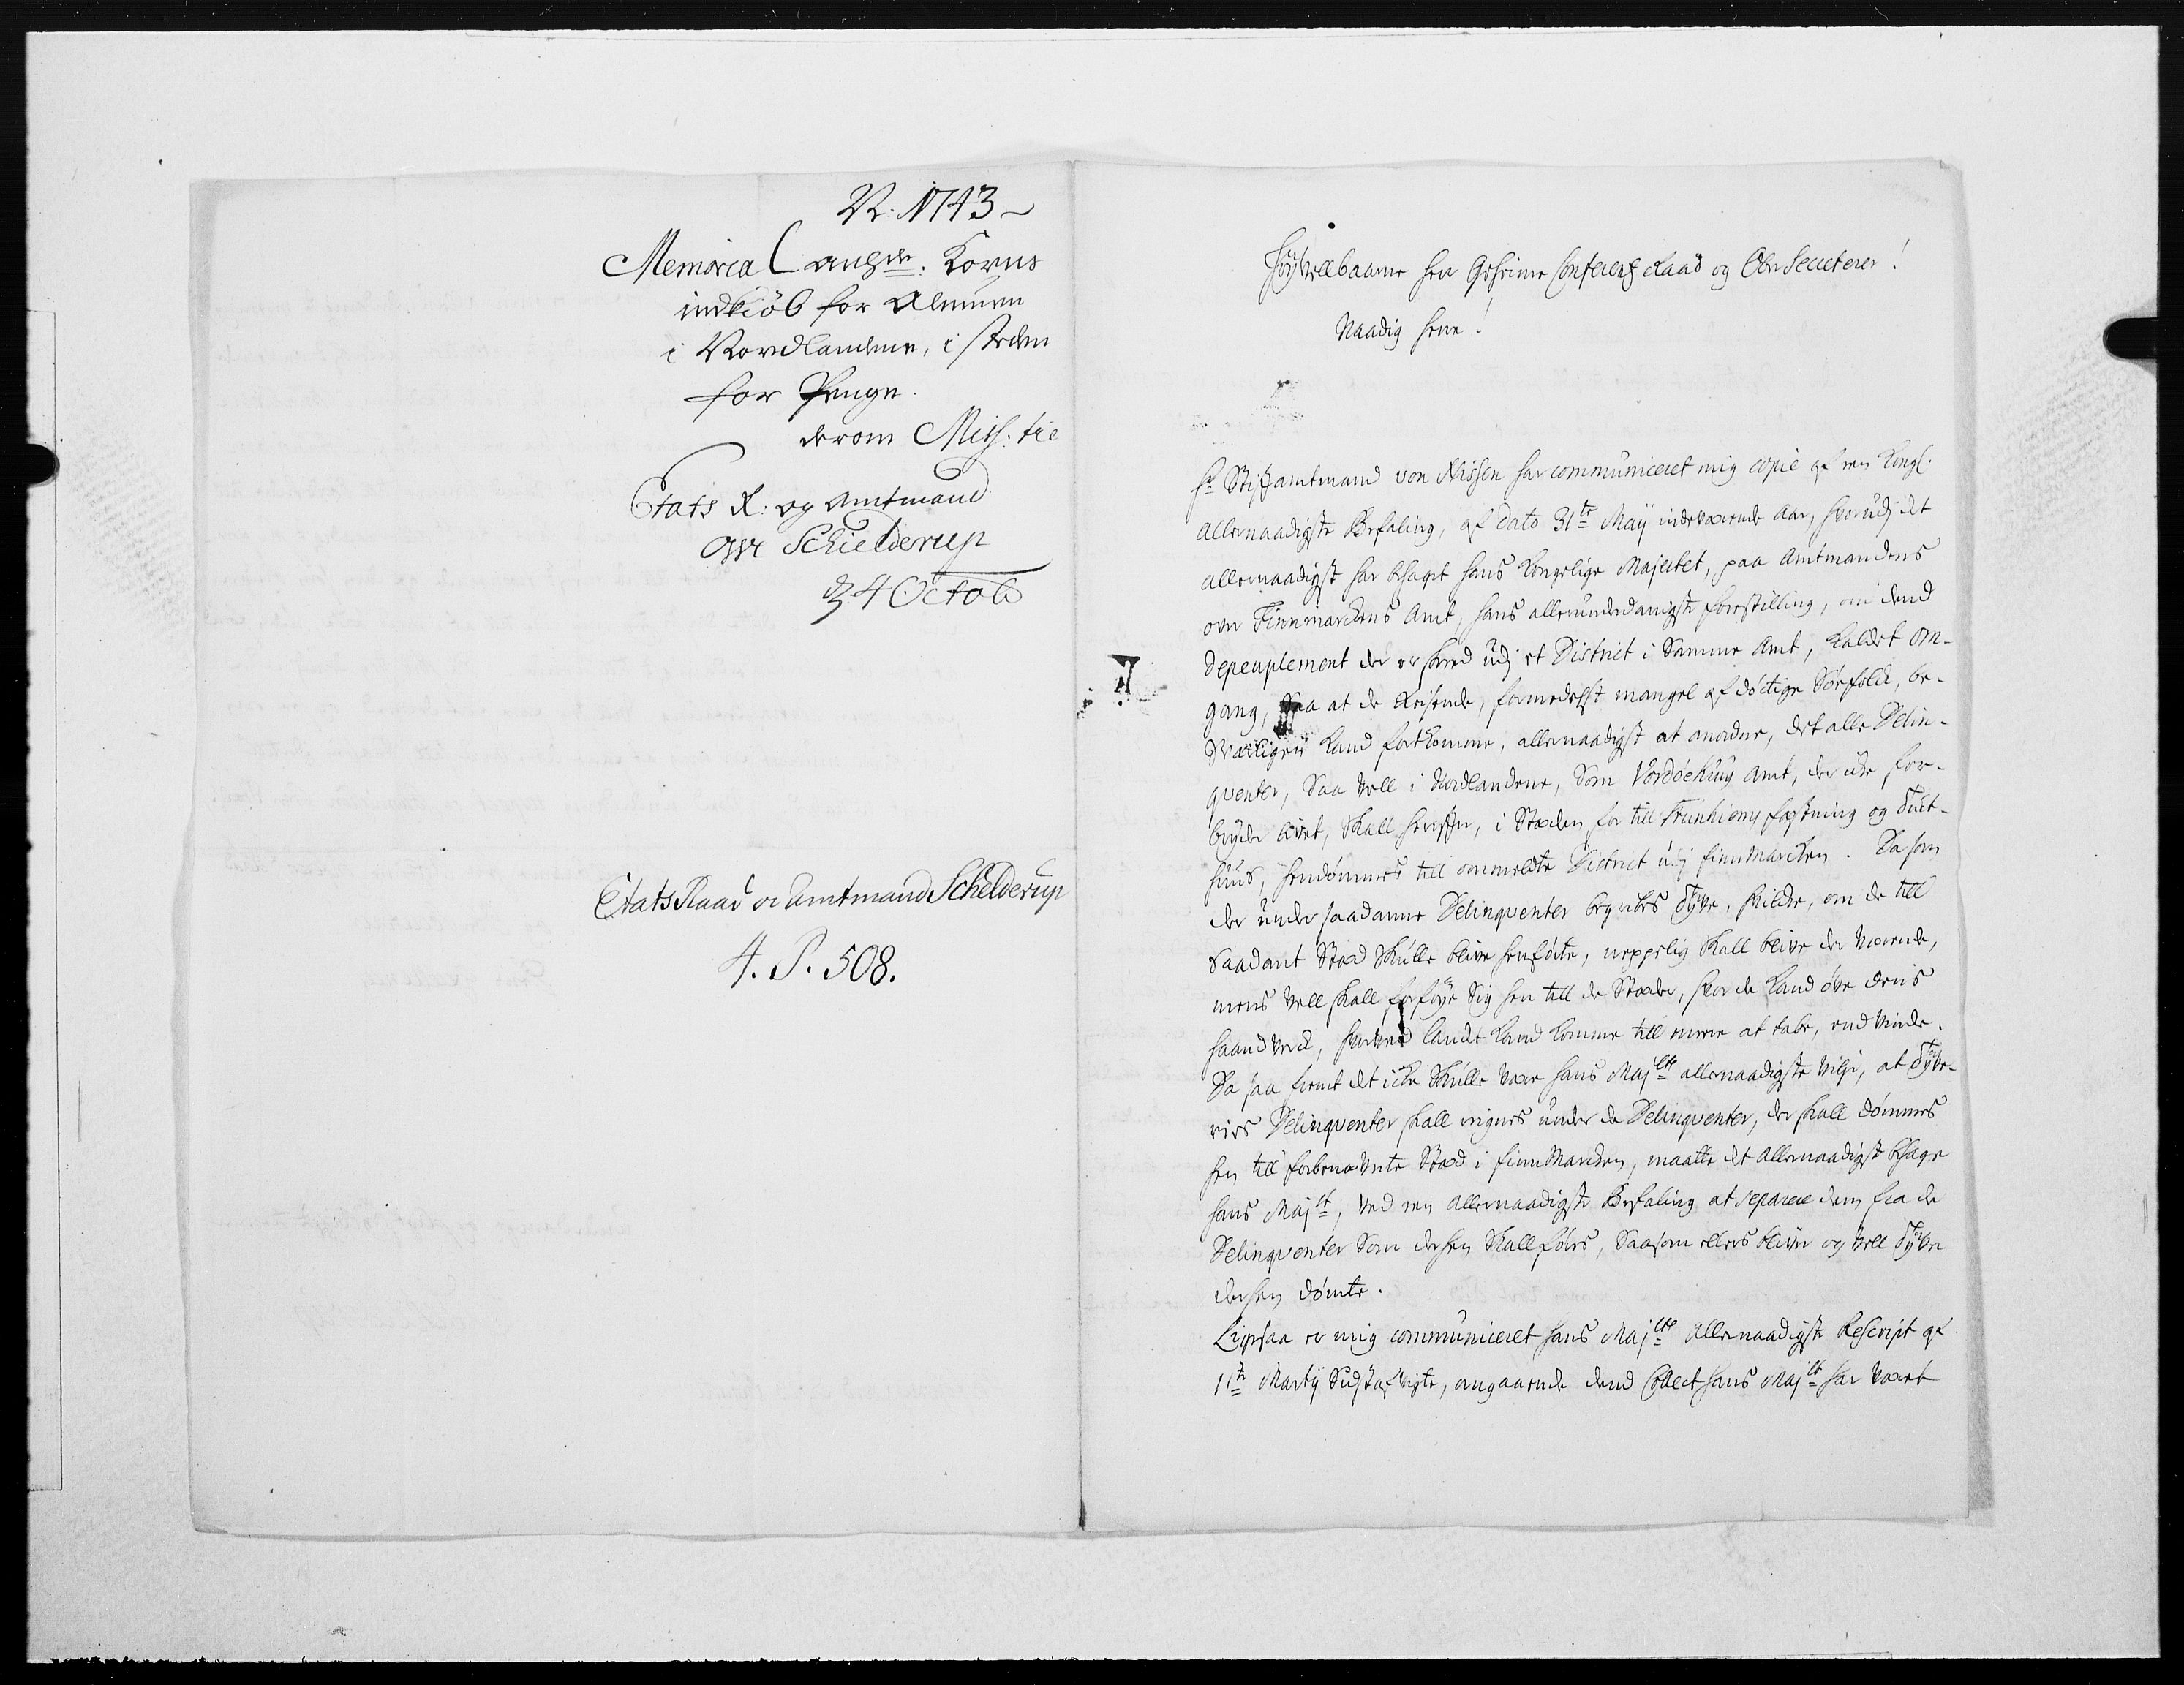 N: 1743
Memorial ang:de Korns
indkiöb for Almuen
i Nordlandene, i steden
for Penge.
derom Miss: til
Etats R: og Amtmand
Ove Schielderup
d. 4 Octob
EtatsRaad og Amtmand Schelderup
4. P. 508.
Høy Velbaarne Herr Geheime Conferentz Raad og Ober Secreterer!
Naadig Herre!
Hr Stiftamtmand von Nissen har communiceret mig copie af een Kongl.
allernaadigste Befaling, af dato 31te Maÿ indeværende Aar, hvorudj det
allernaadigst har behaget Hans Kongelige Majestet, paa Amtmandens
over Finnmarckens Amt, hans allerunderdanigste forestilling, om dend
depeuplement der er skeed udj et District i Samme Amt, kaldet Om-
gang, Saa at de Reisende, formedelst mangel af döctige Söefolck, be-
sværligen kand fortkomme, allernaadigst at anordne, det alle Delin-
qventer, Saa vell i Nordlandene, Som Vordöehuus Amt, der ude for-
bryde livet, skall herefter, i Stæden for till Trunhiems fæstning og Tuct-
huus, hendömmes till ommeldte District udj finnMarcken. Da som
der under saadanne Delinqventer begribes Tyve, hvilcke, om de till
Saadant Stæd skulle blive henförte, neppelig skall blive der værende,
mens vell skall forföye Sig hen till de Stæder, hvor de kand öve deris
haandverck, hvorved landet kand komme till meere at tabe, end vinde.
Da saa fremt det icke skulle være Hans Majtts allernaadigste villie, at Tyve-
ries Delinqventer skall regnes under de Delinqventer, der skall dömmes
hen till forbenævnte Stæd i finnMarcken, maatte det Allernaadigst behage
Hans Majtt, ved een allernaadigste Befaling at separere dem fra de
Delinqventer Som derhen skall föres, Saasom ellers bliver og vell Tyve
derhen dömte.
Ligesaa er mig communiceret Hans Majtts Allernaadigste Rescript af
11te Martÿ Sidstafvigte, angaaende dend Collect Hans Majtt har været